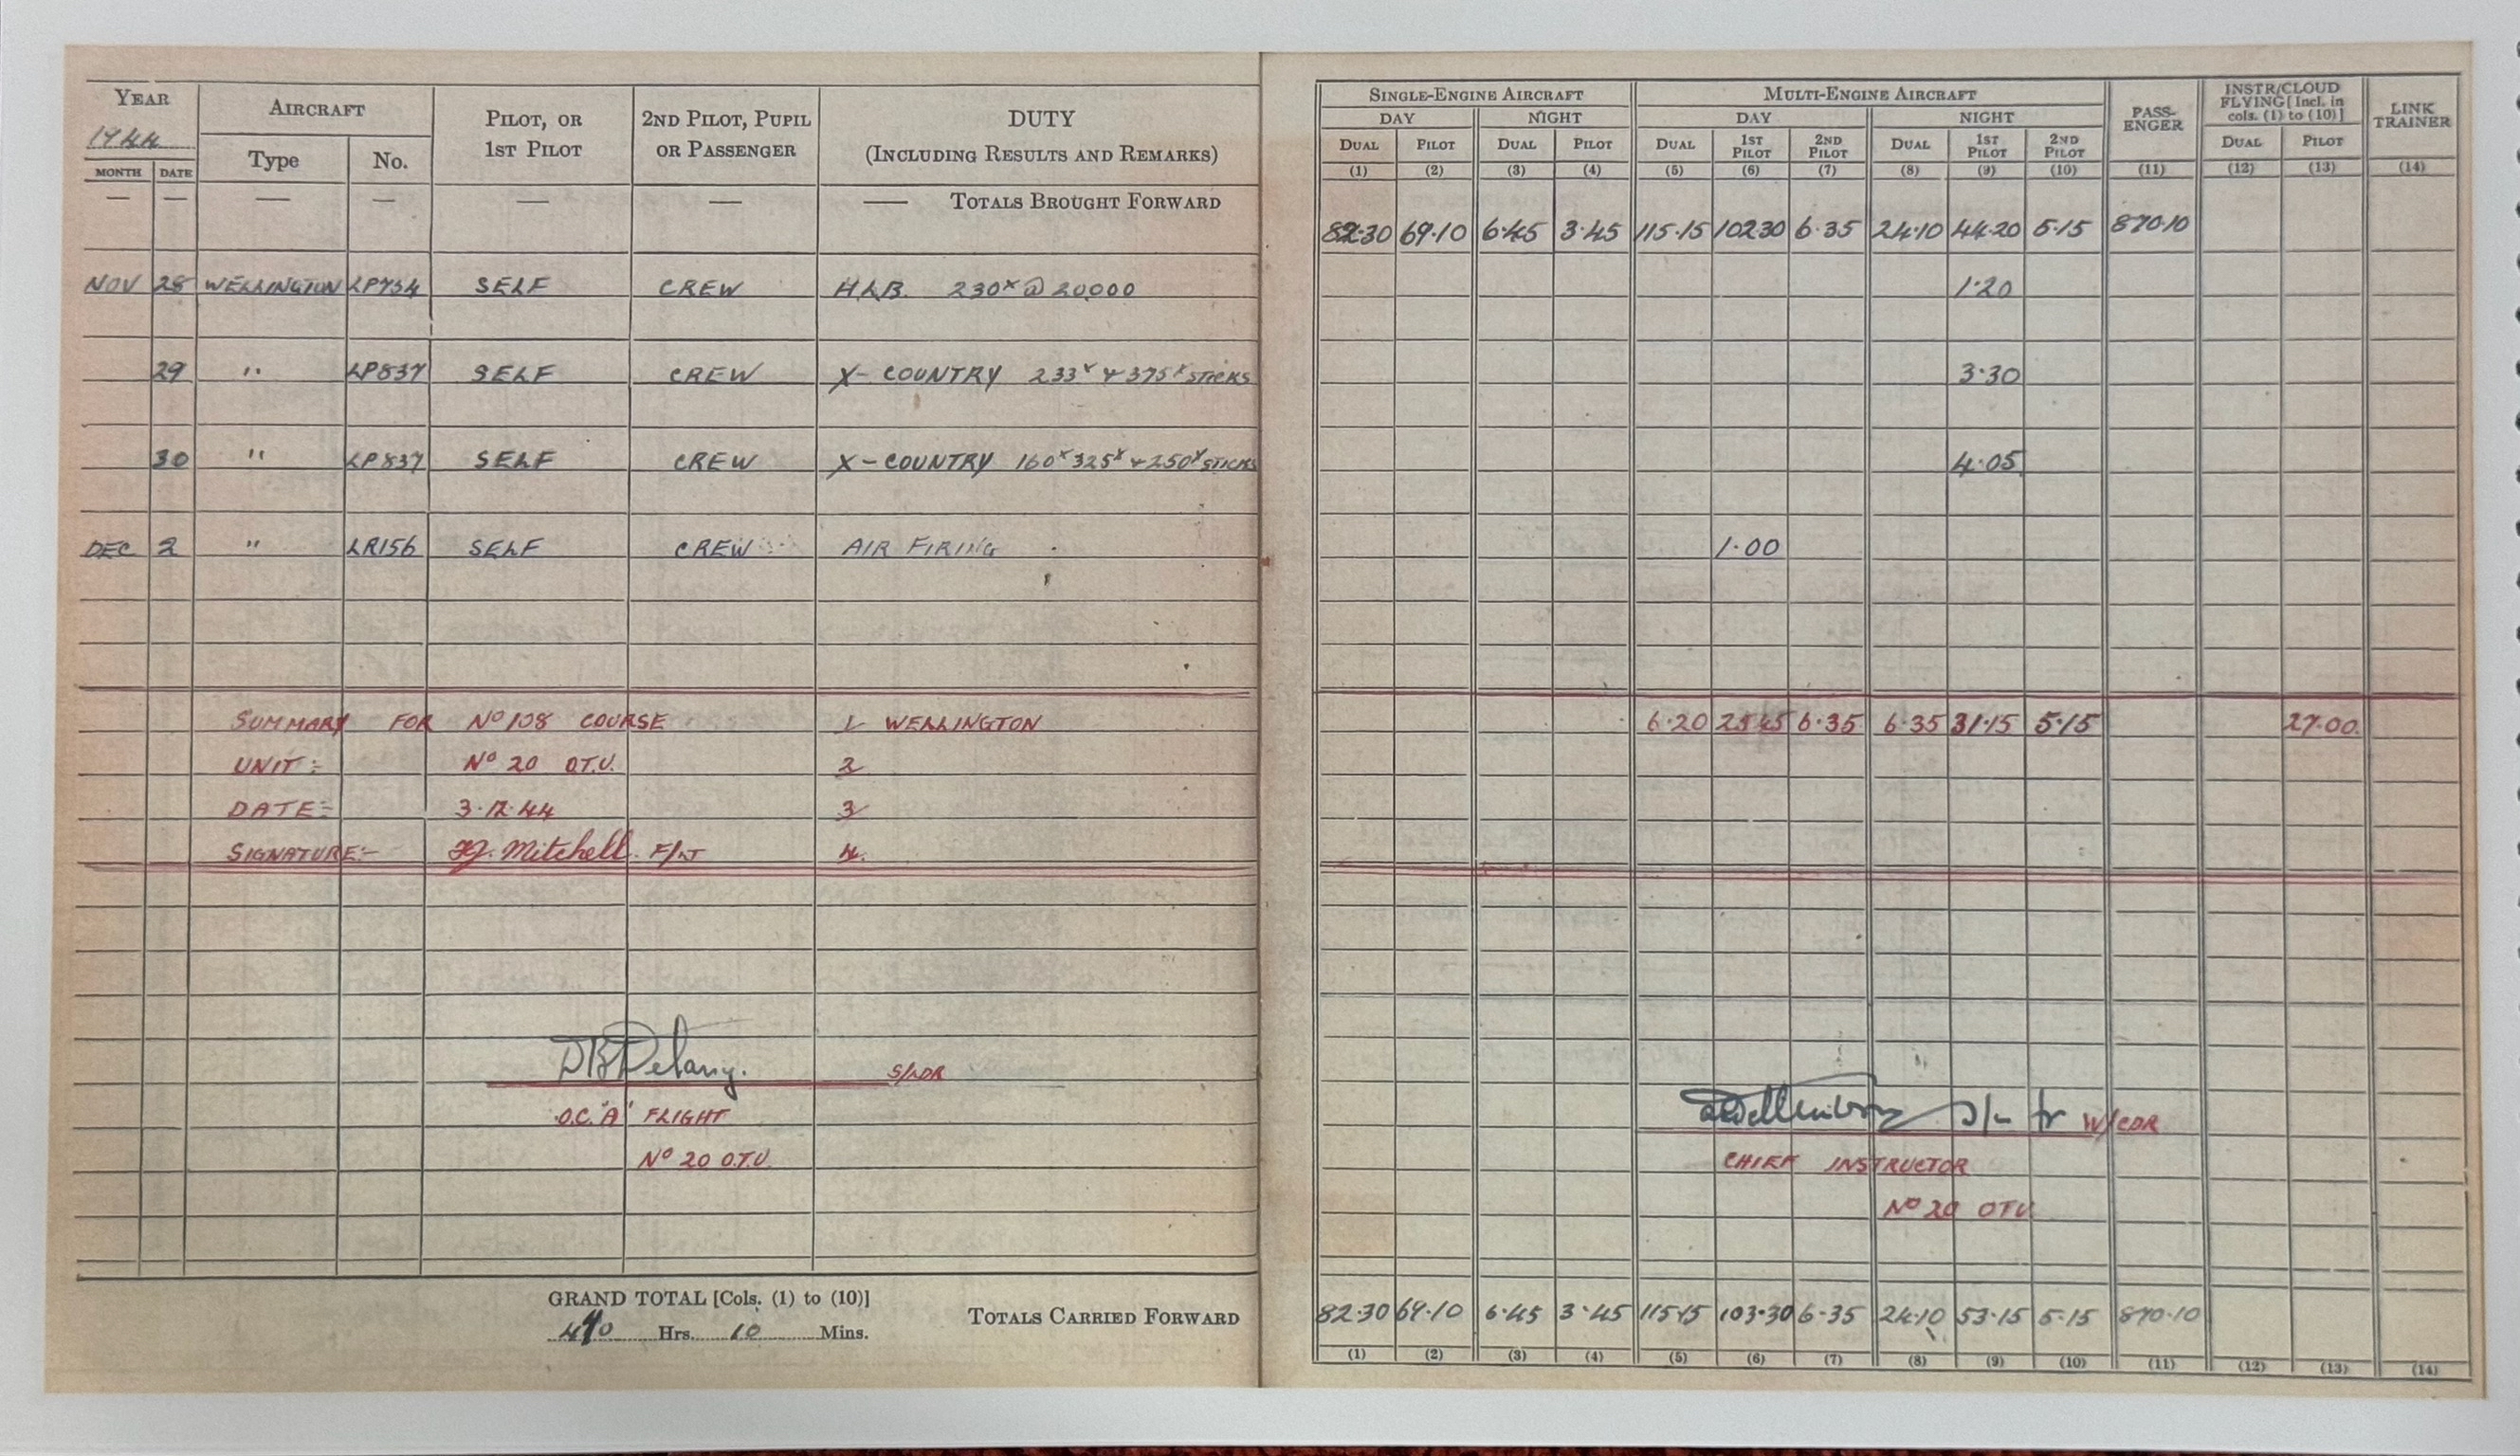 YEAR 1944
AIRCRAFT
PILOT, OR 1ST PILOT
2ND PILOT, PUPIL OR PASSENGER
DUTY
(INCLUDING RESULTS AND REMARKS)
MONTH DATE Type No.
SINGLE-ENGINE AIRCRAFT MULTI-ENGINE AIRCRAFT
PASS-ENGER
INSTR/CLOUD FLYING [Incl. in cols. (1) to (10)]
LINK TRAINER
DAY NIGHT DAY NIGHT
DUAL PILOT DUAL PILOT DUAL 1ST PILOT 2ND PILOT DUAL 1ST PILOT 2ND PILOT DUAL PILOT
(1) (2) (3) (4) (5) (6) (7) (8) (9) (10) (11) (12) (13) (14)
— — — — — — — TOTALS BROUGHT FORWARD
82·30 69·10 6·45 3·45 115·15 102·30 6·35 24·10 44·20 5·15 870·10
NOV 28 WELLINGTON LP734 SELF CREW H.L.B. 230ˣ @ 20,000 1·20
29 " LP837 SELF CREW X-COUNTRY 233ˣ + 375ˣ STICKS 3·30
30 " LP837 SELF CREW X-COUNTRY 160ˣ 325ˣ + 250ˣ STICKS 4·05
DEC 2 " LR156 SELF CREW AIR FIRING 1·00
SUMMARY FOR Nº 108 COURSE 1 WELLINGTON 6·20 25·45 6·35 6·35 31·15 5·15 27·00
UNIT:- Nº 20 O.T.U. 2
DATE:- 3·12·44 3
SIGNATURE:- Mitchell. F/LT 4.
D B Delany. S/LDR
O.C. 'A' FLIGHT
Nº 20 O.T.U.
S/L for W/CDR
CHIEF INSTRUCTOR
Nº 20 OTU
GRAND TOTAL [Cols. (1) to (10)]
470 Hrs. 10 Mins.
TOTALS CARRIED FORWARD
82·30 69·10 6·45 3·45 115·15 103·30 6·35 24·10 53·15 5·15 870·10
(1) (2) (3) (4) (5) (6) (7) (8) (9) (10) (11) (12) (13) (14)